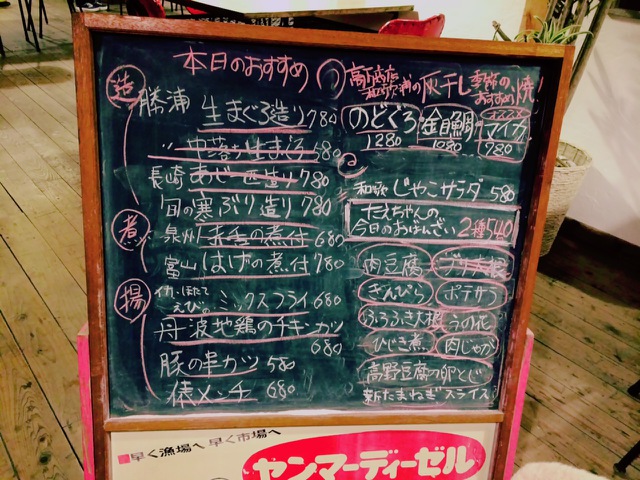 本日のおすすめ
造
勝浦 生まぐろ造り 780
〃 中落ち生まぐろ 680
長崎 あじ一匹造り 780
旬の寒ぶり造り 780
煮
泉州 赤舌の煮付 680
富山 はげの煮付 780
揚
イカ・ほたて えびの ミックスフライ 680
丹波地鶏のチキンカツ 680
豚の串カツ 580
俵メンチ 680
の灰干し 季節の、おすすめ焼!
のどぐろ 1280
金目鯛 1080
オススメ マイカ 980
和歌 じゃこサラダ 580
たえちゃんの
今日のおばんざい 2種540
肉豆腐 ブリ大根
きんぴら ポテサラ
ふろふき大根 うの花
ひじき煮 肉じゃが
高野豆腐の卵とじ
新たまねぎスライス
■早く漁場へ 早く市場へ
ヤンマーディーゼル